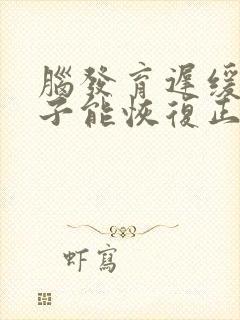 腦發育遲緩
子能恢復正
虾寫